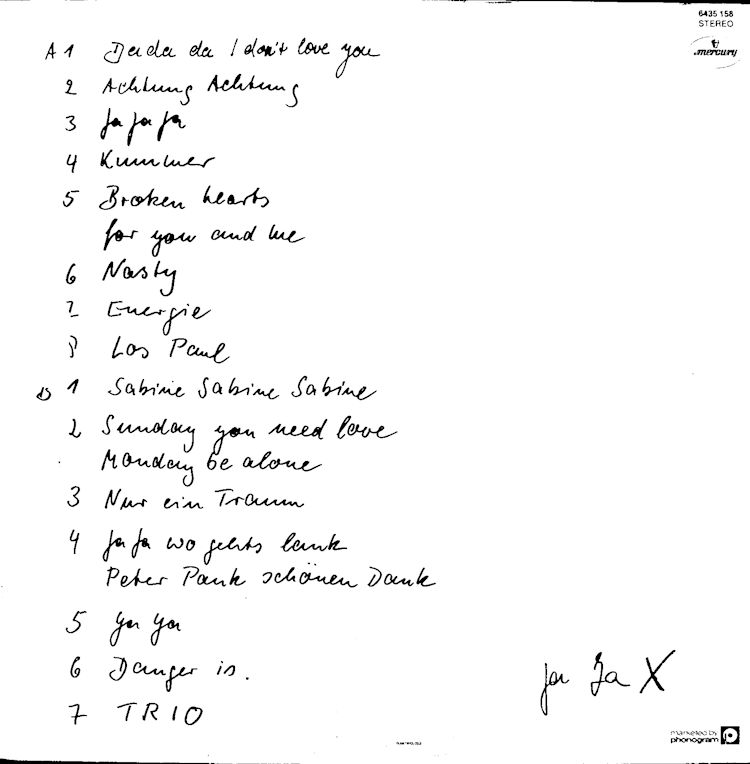 6435 158
STEREO
mercury
A 1 Da da da I don't love you
2 Achtung Achtung
3 Ja Ja Ja
4 Kummer
5 Broken hearts
for you and me
6 Nasty
7 Energie
8 Los Paul
B 1 Sabine Sabine Sabine
2 Sunday you need love
Monday be alone
3 Nur ein Traum
4 Ja Ja wo gehts lank
Peter Pank schönen Dank
5 Ya Ya
6 Danger is.
7 TRIO
Ja Ja X
marketed by
phonogram